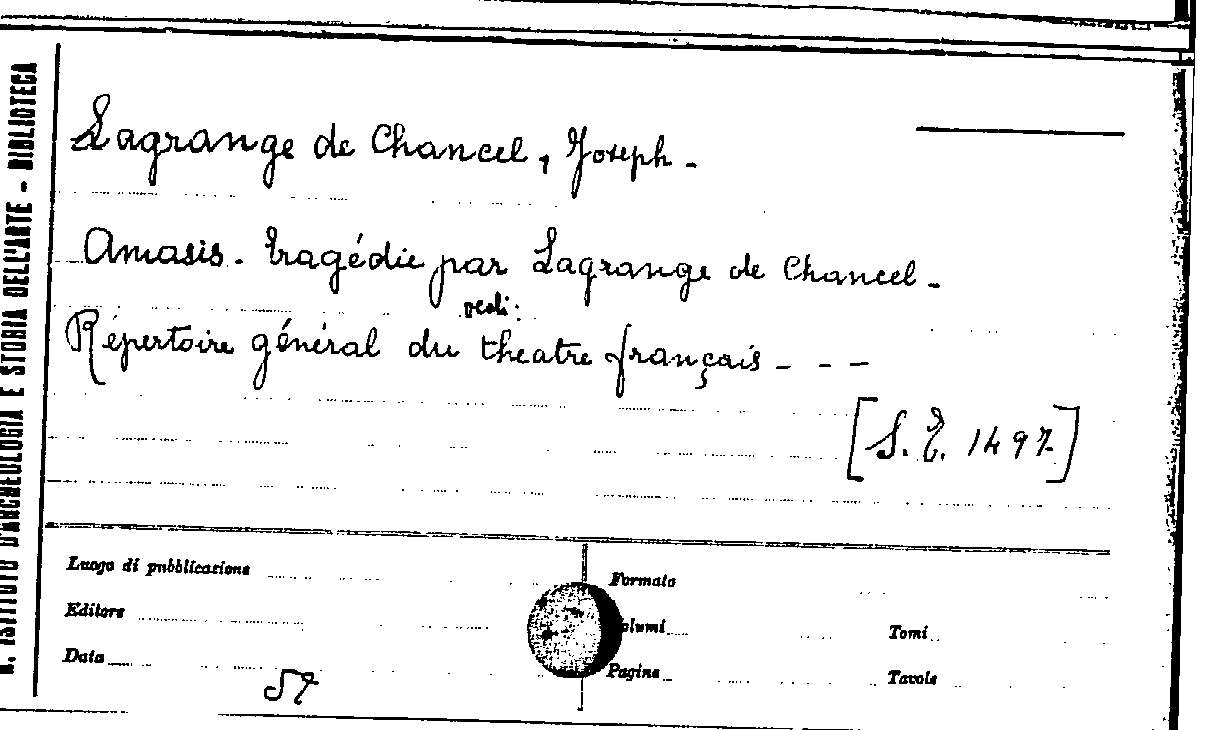 R. ISTITUTO D'ARCHEOLOGIA E STORIA DELL'ARTE - BIBLIOTECA
Lagrange de Chancel, Joseph -
Amasis. tragédie par Lagrange de Chancel -
vedi:
Répertoire général du theatre français - - -
[S. E. 1497]
Luogo di pubblicazione
Formato
Editore
Volumi
Tomi
Data
Pagine
Tavole
57